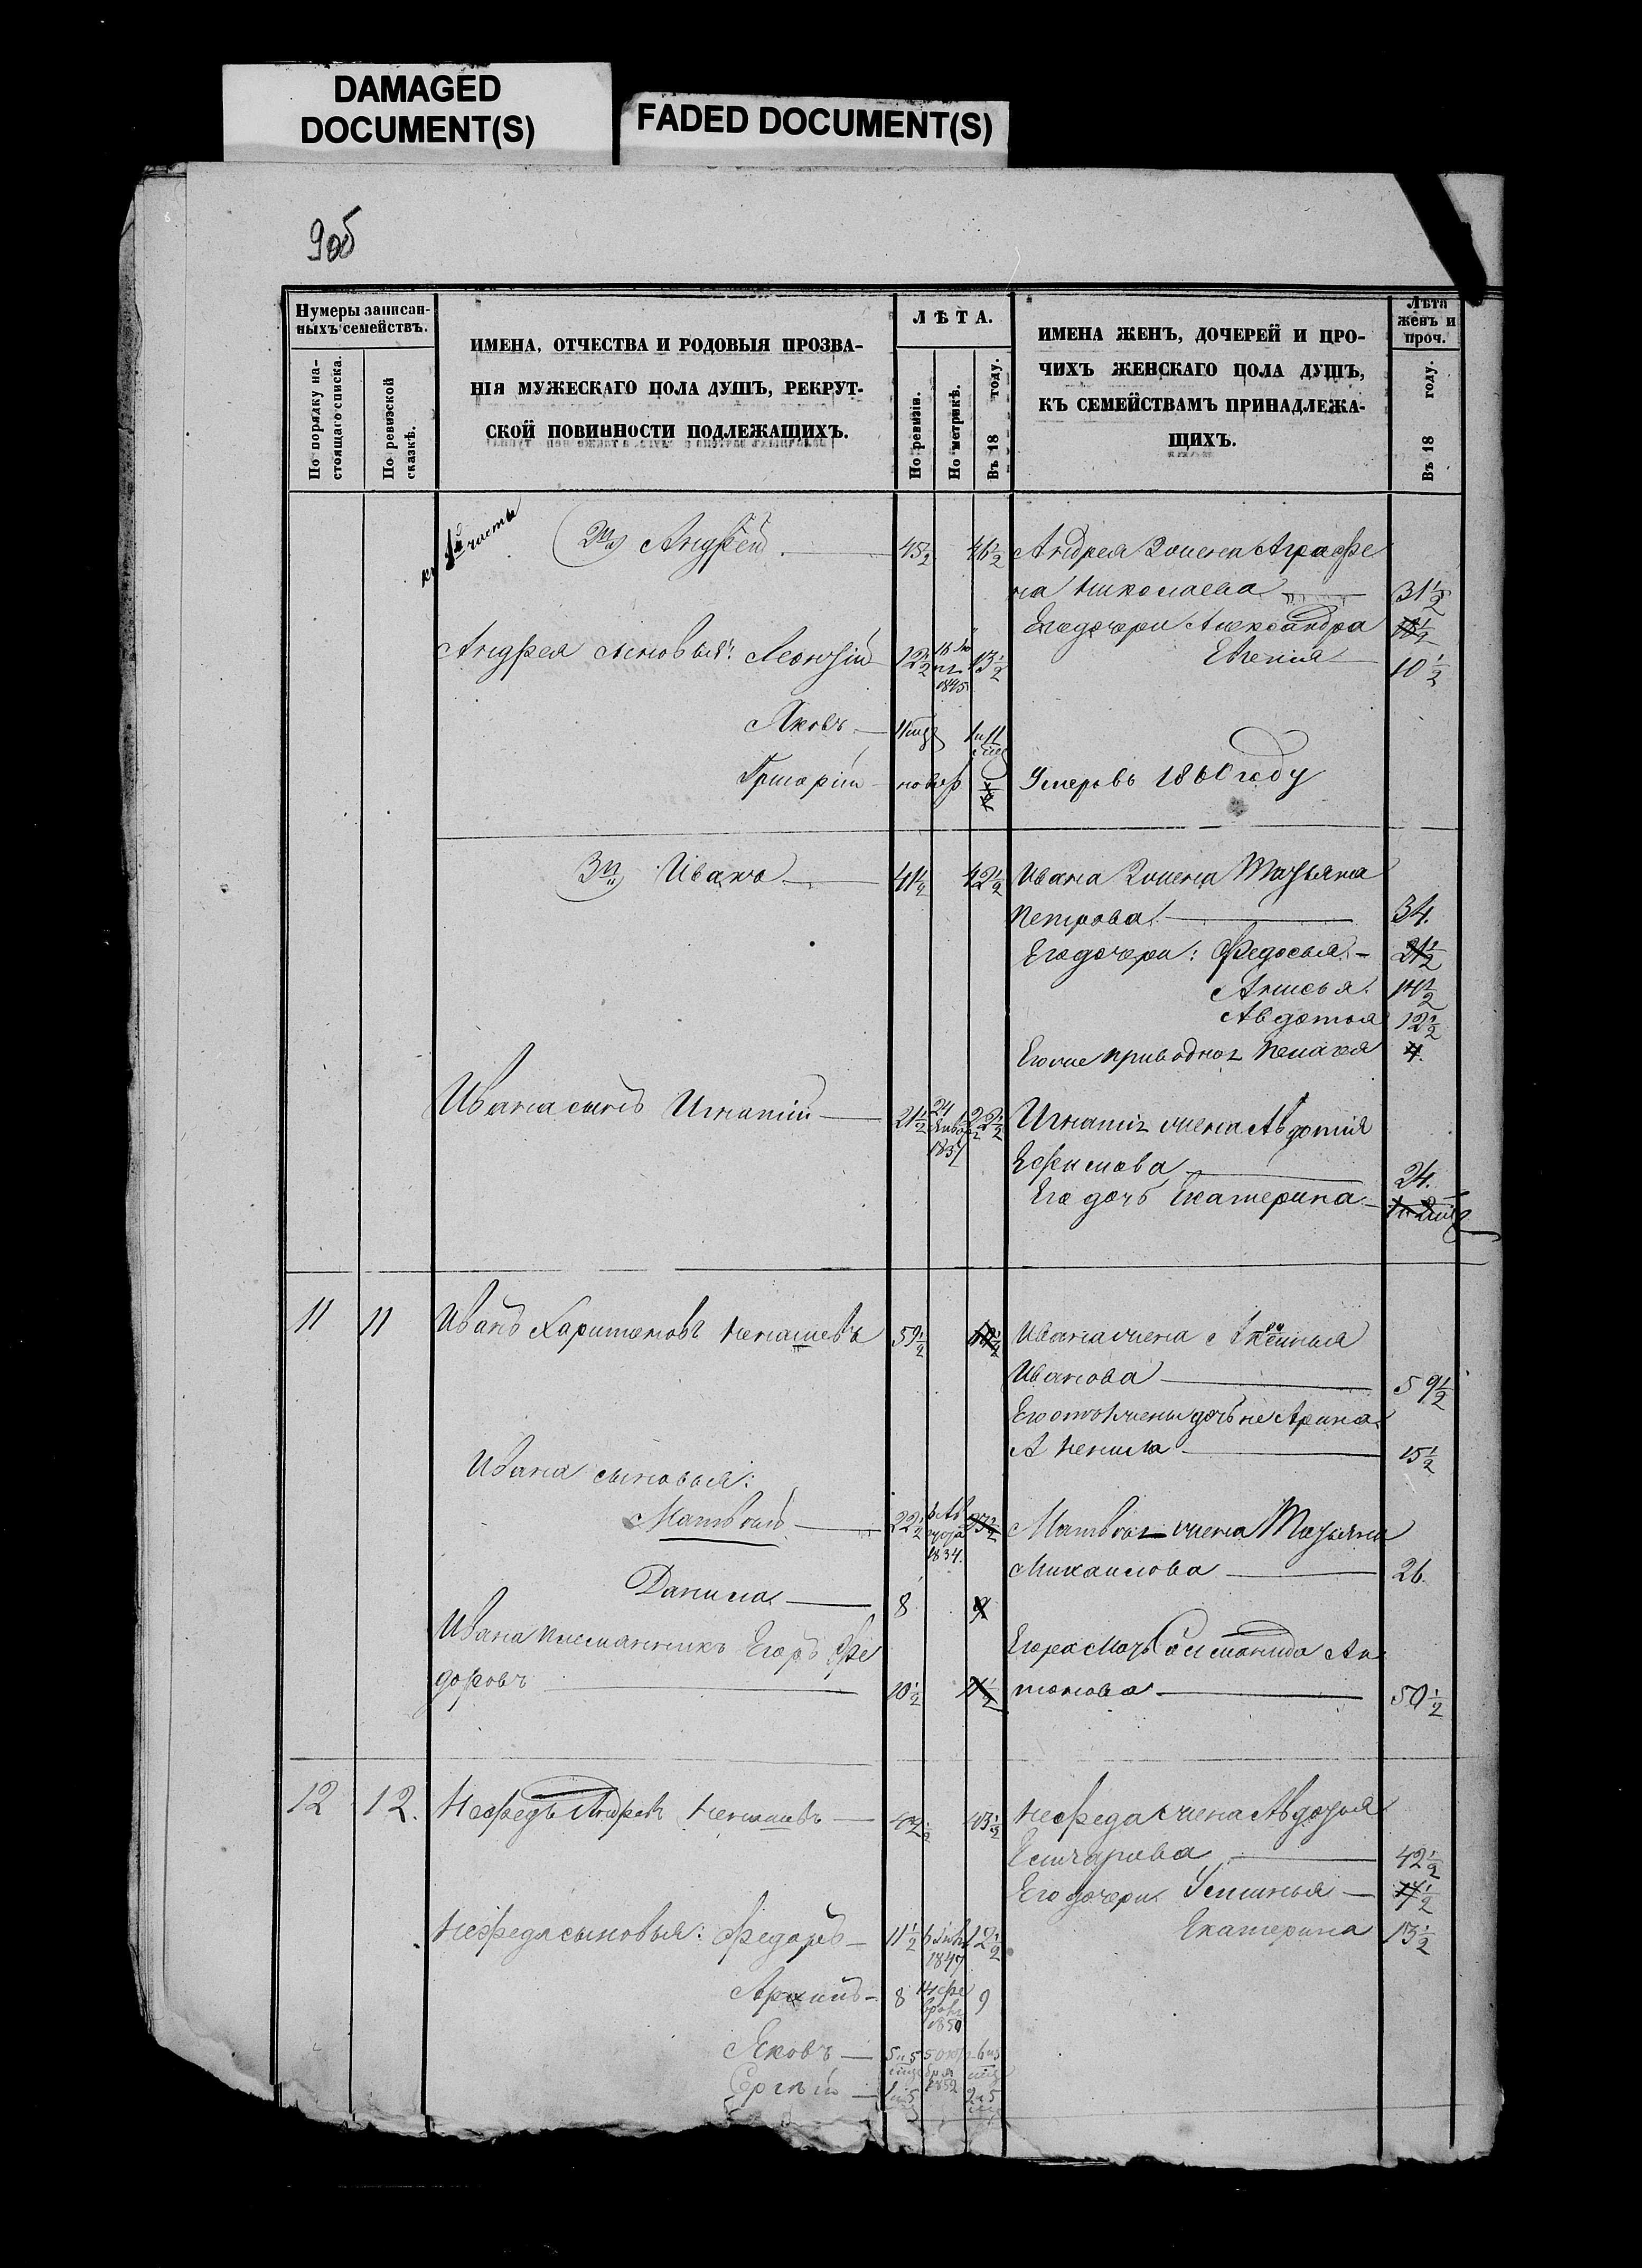 DAMAGED
DOCUMENT(S)
FADED DOCUMENT(S)
9об
Нумеры записан-
ныхъ семействъ.
По порядку на-
стоящаго списка.
По ревизской
сказкѣ.
ИМЕНА, ОТЧЕСТВА И РОДОВЫЯ ПРОЗВА-
НІЯ МУЖЕСКАГО ПОЛА ДУШЪ, РЕКРУТ-
СКОЙ ПОВИННОСТИ ПОДЛЕЖАЩИХЪ.
ЛѢТА.
По ревизіи.
По метрикѣ.
Въ 18 году.
ИМЕНА ЖЕНЪ, ДОЧЕРЕЙ И ПРО-
ЧИХЪ ЖЕНСКАГО ПОЛА ДУШЪ,
КЪ СЕМЕЙСТВАМЪ ПРИНАДЛЕЖА-
ЩИХЪ.
Лѣта
женъ и
проч.
Въ 18 году.
часть
2й Андрей 45½ 46½ Андрея жена Аграфе
на Николаева 31½
Его дочери Александра
Андрея сыновья: Леонтій 12½ 1845 13½ Евгенія 10½
Яковъ 11 мѣ 1 и 11
Григорій новор Умеръ въ 1860 году
3й Иванъ 41½ 42½ Ивана жена Татьяна
Петрова 34.
Его дочери: Федосья 21½
Анисья 14½
Авдотья 12½
Пелагея 4.
Ивана сынъ Игнатій 21½ 24 Января 1837 22½ Игнатія жена Авдотія
Ефимова 24.
Его дочь Екатерина
11 11 Иванъ Харитоновъ Ненашевъ 59½ Ивана жена
Иванова 59½
15½
Ивана сыновья:
Матвей 22½ 1834. 23½ Матвея жена Татьяна
Михаилова 26.
Данила 8 9
Ивана племянникъ Егоръ Фе Егора мать Соломонида Ан
доровъ 10½ 11½ тонова 50½
12 12. Нефедъ Андреев Ненашевъ 42½ 43½ Нефеда жена Авдотья
42½
Его дочери Устинья 17½
Нефеда сыновья: Федоръ 11½ 1847 12½ Екатерина 13½
8 14 фе враля 1850 9
Яковъ 5 и 5 5 октя бря 1852 6 и 5
Сергѣй 1 и 5 2 и 5